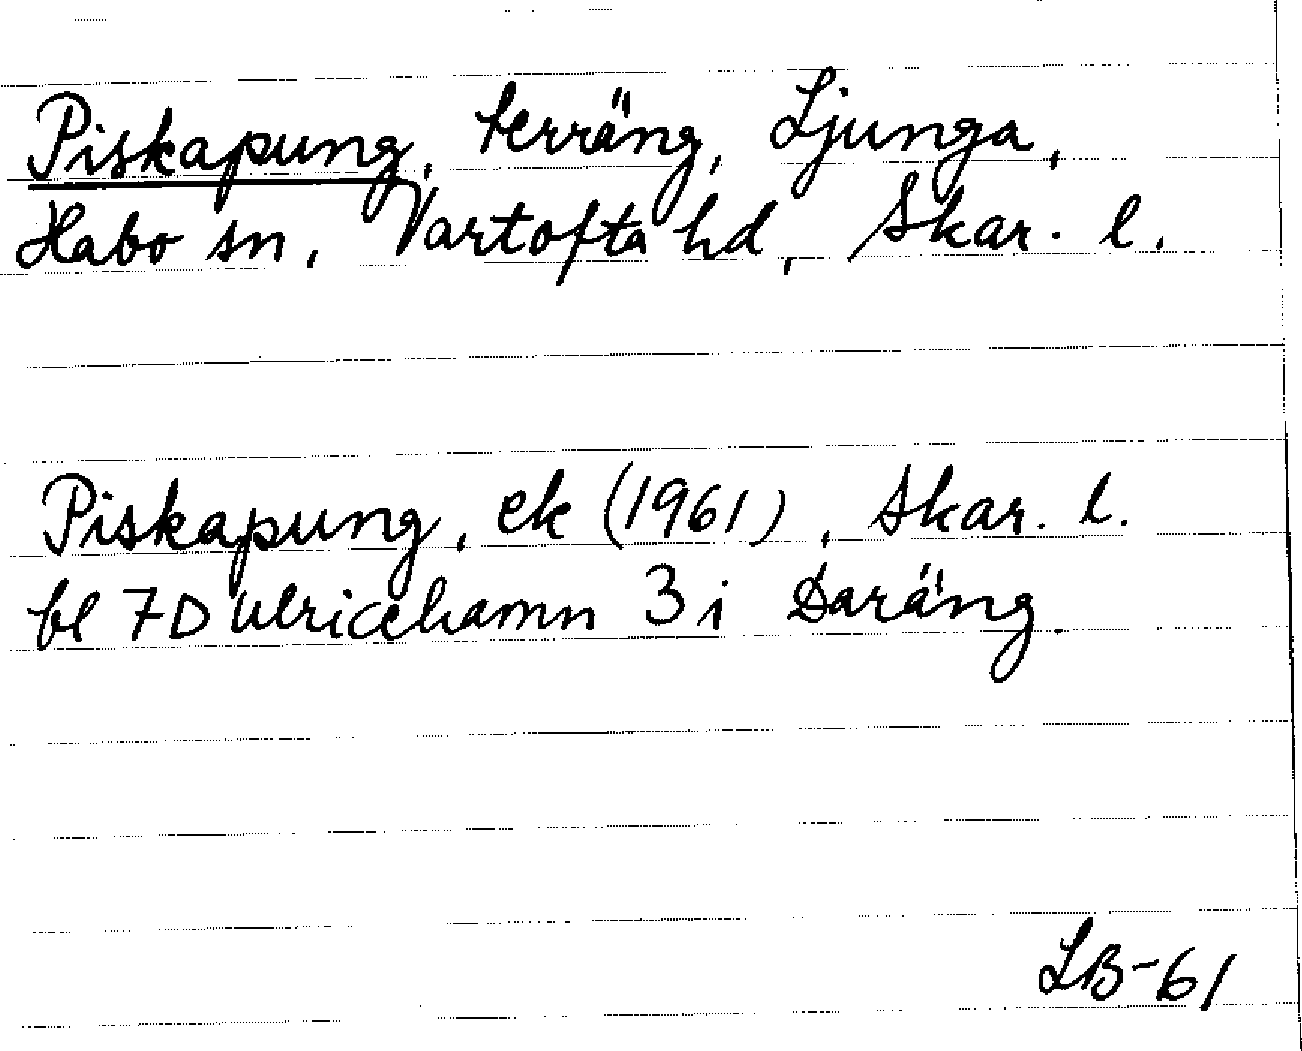 Piskapung, terräng, Ljunga,
Habo sn, Vartofta hd, Skar. l.
Piskapung, ek (1961), Skar. l.
bl 7D Ulricehamn 3i Daräng
LB-61